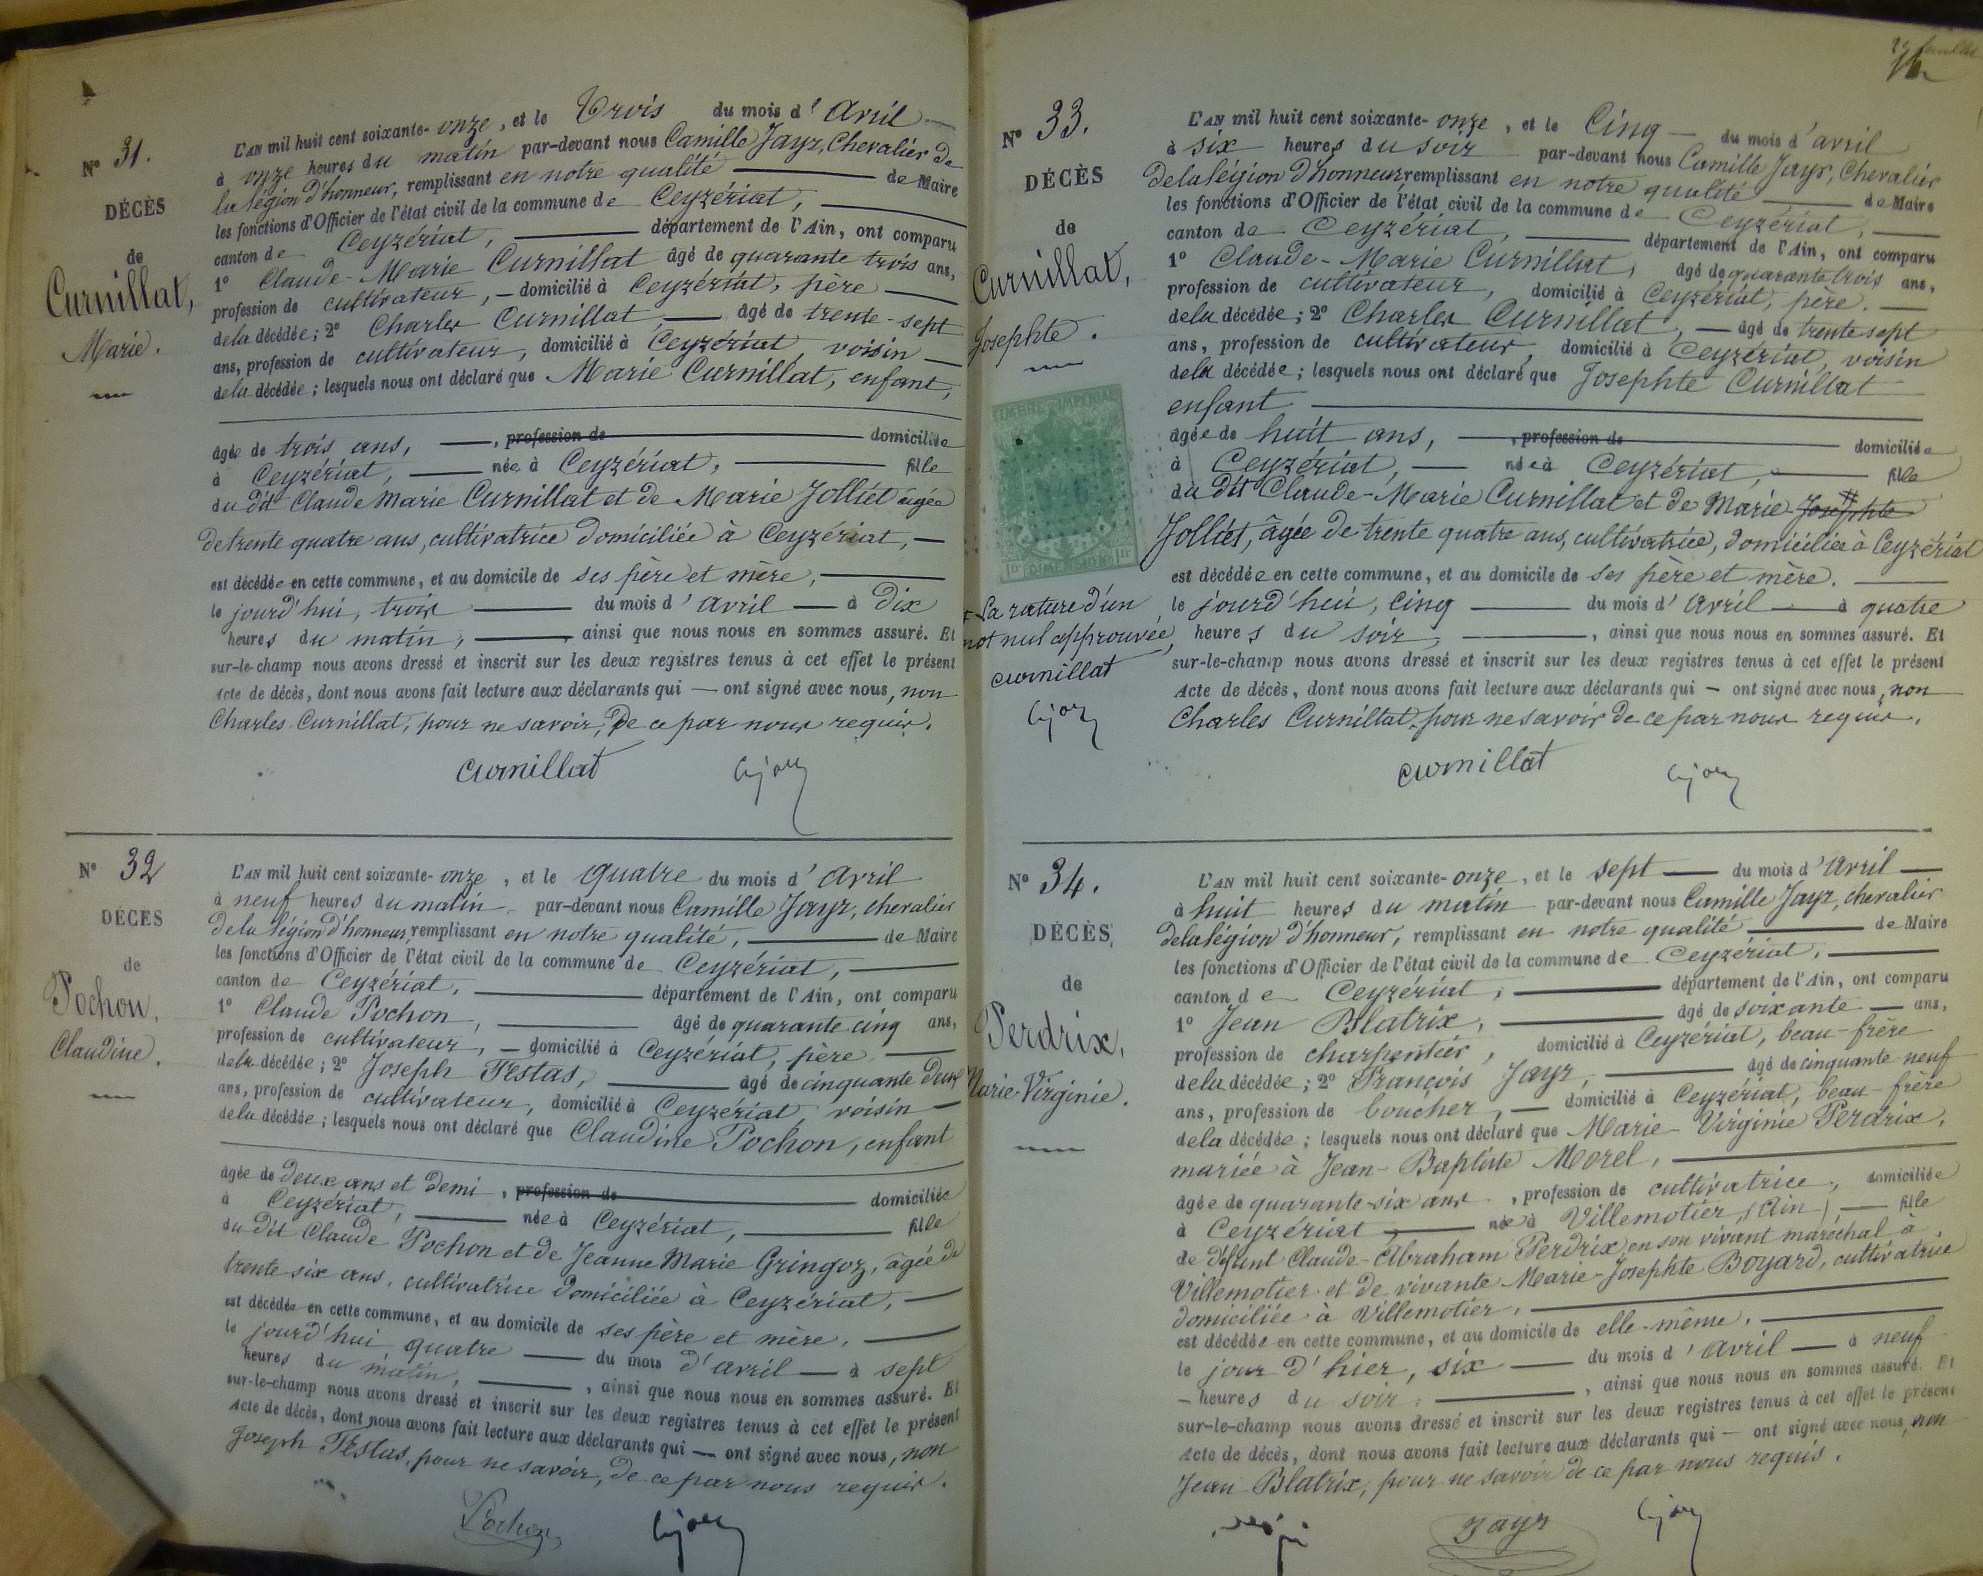 N° 31.
DÉCÈS
de
Curnillat,
Marie.
L'AN mil huit cent soixante-onze, et le Trois du mois d'Avril
à onze heures du matin par-devant nous Camille Jayr, Chevalier de
la légion d'honneur, remplissant en notre qualité de Maire
les fonctions d'Officier de l'état civil de la commune de Ceyzériat,
canton de Ceyzériat, département de l'Ain, ont comparu
1° Claude-Marie Curnillat âgé de quarante trois ans,
profession de cultivateur, domicilié à Ceyzériat, père
de la décédée; 2° Charles Curnillat âgé de trente-sept
ans, profession de cultivateur, domicilié à Ceyzériat, voisin
de la décédée; lesquels nous ont déclaré que Marie Curnillat, enfant,
âgée de trois ans, profession de domiciliée
à Ceyzériat, née à Ceyzériat, fille
du dit Claude Marie Curnillat et de Marie Jolliet âgée
de trente quatre ans, cultivatrice domiciliée à Ceyzériat,
est décédée en cette commune, et au domicile de ses père et mère,
le jourd'hui, trois du mois d'avril à dix
heures du matin, ainsi que nous nous en sommes assuré. Et
sur-le-champ nous avons dressé et inscrit sur les deux registres tenus à cet effet le présent
Acte de décès, dont nous avons fait lecture aux déclarants qui ont signé avec nous, non
Charles Curnillat, pour ne savoir, de ce par nous requis.
curnillat
N° 32
DÉCÈS
de
Pochon,
Claudine.
L'AN mil huit cent soixante-onze, et le quatre du mois d'Avril
à neuf heures du matin par-devant nous Camille Jayr, chevalier
de la légion d'honneur, remplissant en notre qualité, de Maire
les fonctions d'Officier de l'état civil de la commune de Ceyzériat,
canton de Ceyzériat, département de l'Ain, ont comparu
1° Claude Pochon, âgé de quarante cinq ans,
profession de cultivateur, domicilié à Ceyzériat, père
de la décédée; 2° Joseph Festas, âgé de cinquante deux
ans, profession de cultivateur, domicilié à Ceyzériat, voisin
de la décédée; lesquels nous ont déclaré que Claudine Pochon, enfant
âgée de deux ans et demi, profession de domiciliée
à Ceyzériat, née à Ceyzériat, fille
du dit Claude Pochon et de Jeanne Marie Gringoz, âgée de
trente six ans, cultivatrice domiciliée à Ceyzériat,
est décédée en cette commune, et au domicile de ses père et mère,
le jourd'hui quatre du mois d'avril à sept
heures du matin, ainsi que nous nous en sommes assuré. Et
sur-le-champ nous avons dressé et inscrit sur les deux registres tenus à cet effet le présent
Acte de décès, dont nous avons fait lecture aux déclarants qui ont signé avec nous, non
Joseph Festas, pour ne savoir, de ce par nous requis.
Pochon
N° 33.
DÉCÈS
de
Curnillat,
Josephte.
TIMBRE IMPÉRIAL
1f DIMENSION 1f
La rature d'un
mot nul approuvée,
curnillat
L'AN mil huit cent soixante-onze, et le Cinq du mois d'avril
à six heures du soir par-devant nous Camille Jayr, Chevalier
de la légion d'honneur remplissant en notre qualité de Maire
les fonctions d'Officier de l'état civil de la commune de Ceyzériat,
canton de Ceyzériat, département de l'Ain, ont comparu
1° Claude-Marie Curnillat, âgé de quarante trois ans,
profession de cultivateur, domicilié à Ceyzériat, père.
de la décédée; 2° Charles Curnillat, âgé de trente sept
ans, profession de cultivateur, domicilié à Ceyzériat, voisin
de la décédée; lesquels nous ont déclaré que Josephte Curnillat
enfant
âgée de huit ans, profession de domiciliée
à Ceyzériat, née à Ceyzériat, fille
du dit Claude-Marie Curnillat et de Marie Josephte
Jolliet, âgée de trente quatre ans, cultivatrice, domiciliée à Ceyzériat
est décédée en cette commune, et au domicile de ses père et mère.
le jourd'hui, cinq du mois d'Avril à quatre
heures du soir, ainsi que nous nous en sommes assuré. Et
sur-le-champ nous avons dressé et inscrit sur les deux registres tenus à cet effet le présent
Acte de décès, dont nous avons fait lecture aux déclarants qui ont signé avec nous, non
Charles Curnillat, pour ne savoir de ce par nous requis.
curnillat
N° 34.
DÉCÈS
de
Perdrix,
Marie-Virginie.
L'AN mil huit cent soixante-onze, et le sept du mois d'Avril
à huit heures du matin par-devant nous Camille Jayr, chevalier
de la légion d'honneur, remplissant en notre qualité de Maire
les fonctions d'Officier de l'état civil de la commune de Ceyzériat,
canton de Ceyzériat, département de l'Ain, ont comparu
1° Jean Blatrix, âgé de soixante ans,
profession de charpentier, domicilié à Ceyzériat, beau-frère
de la décédée; 2° François Jayr, âgé de cinquante neuf
ans, profession de boucher, domicilié à Ceyzériat, beau-frère
de la décédée; lesquels nous ont déclaré que Marie-Virginie Perdrix,
mariée à Jean-Baptiste Morel,
âgée de quarante-six ans, profession de cultivatrice, domiciliée
à Ceyzériat née à Villemotier, (Ain) fille
de défunt Claude-Abraham Perdrix, en son vivant maréchal à
Villemotier et de vivante Marie-Josephte Boyard, cultivatrice
domiciliée à Villemotier,
est décédée en cette commune, et au domicile de elle-même,
le jour d'hier, six du mois d'avril à neuf
heures du soir, ainsi que nous nous en sommes assuré. Et
sur-le-champ nous avons dressé et inscrit sur les deux registres tenus à cet effet le présent
Acte de décès, dont nous avons fait lecture aux déclarants qui ont signé avec nous, non
Jean Blatrix, pour ne savoir de ce par nous requis.
Jayr